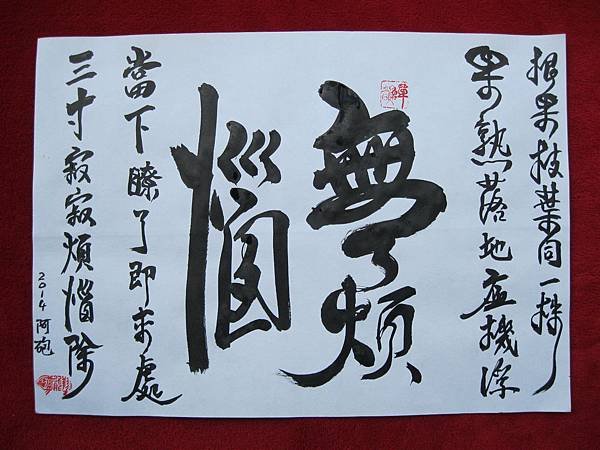 根果枝葉同一株
果熟落地玄機深
無煩
惱
當下瞭了即來處
三寸寂寂煩惱除
2014 阿砲